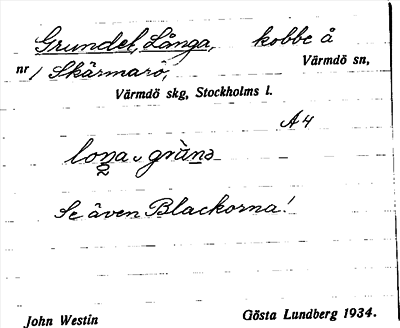 Grundet, Långa, kobbe å
nr 1 Skärmarö, Värmdö sn,
Värmdö skg, Stockholms l.
A4
Se även Blackorna!
John Westin Gösta Lundberg 1934.